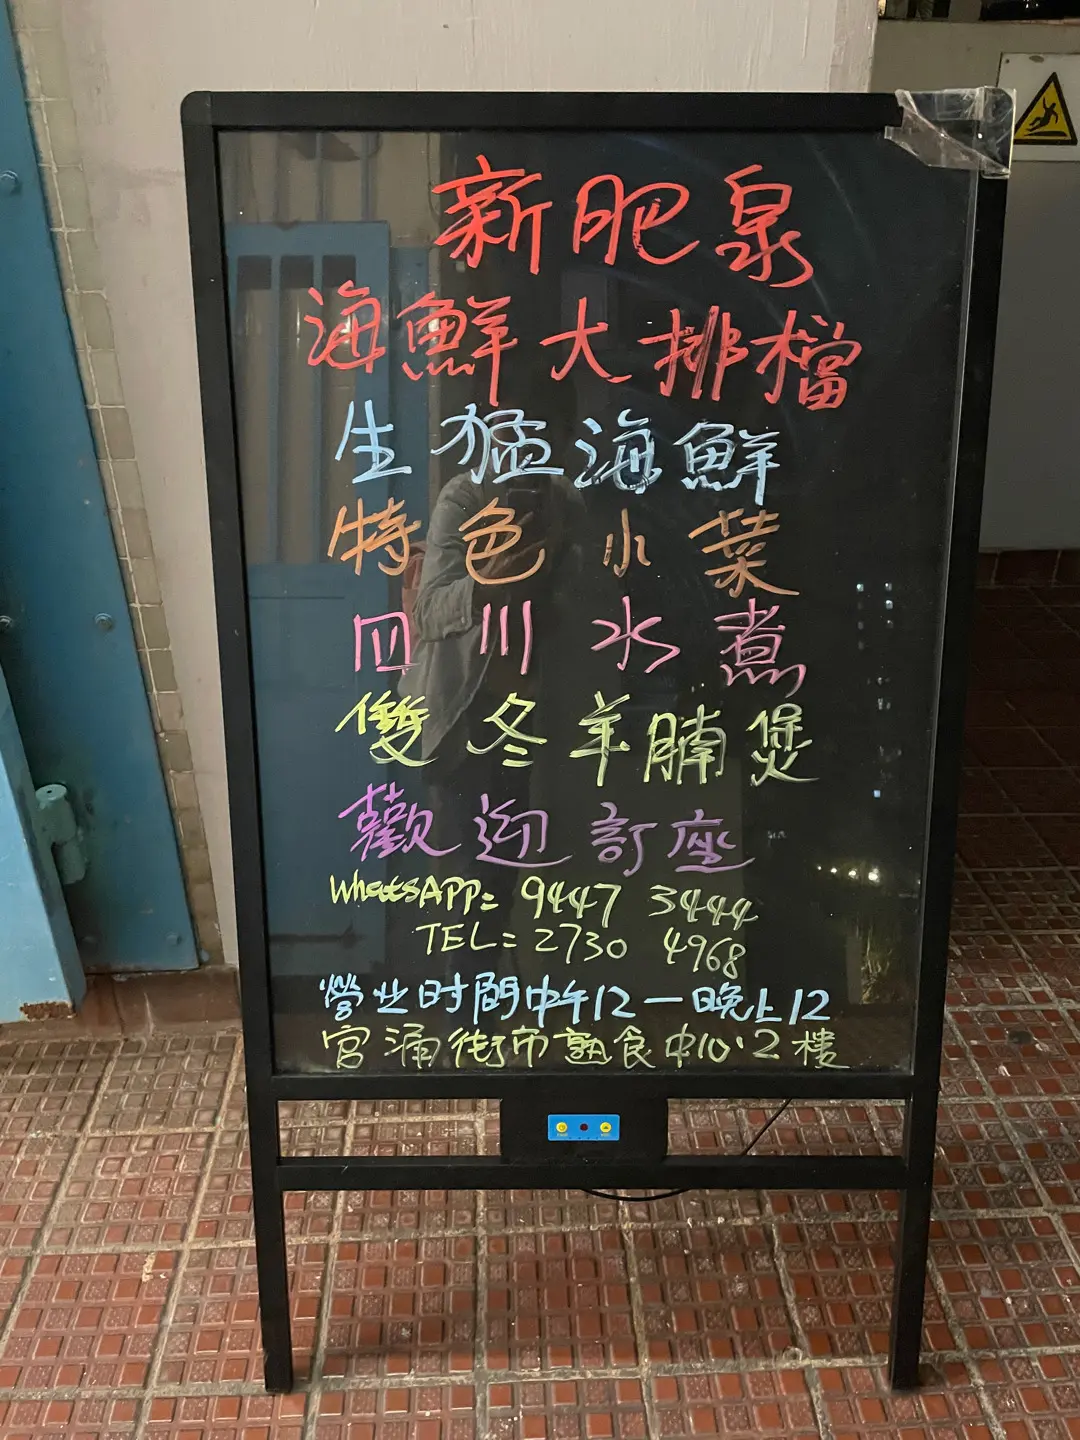 新肥泉
海鮮大排檔
生猛海鮮
特色小菜
四川水煮
雙冬羊腩煲
歡迎訂座
WhatsAPP: 9447 3444
TEL = 2730 4968
營业时間中午12一晚上12
官涌街市熟食中心2樓